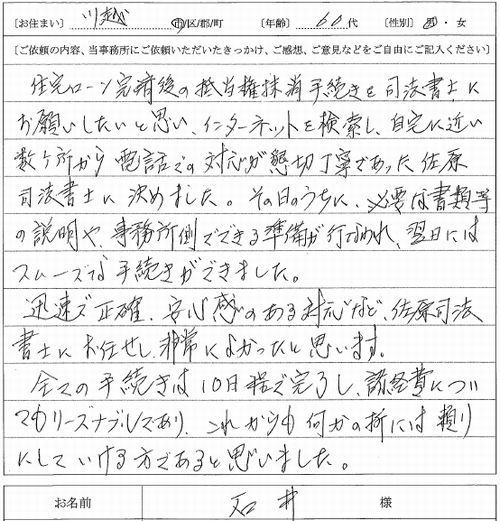 ［お住まい］ 川越 市/区/郡/町 ［年齢］ 60代 ［性別］ 男・女
［ご依頼の内容、当事務所にご依頼いただいたきっかけ、ご感想、ご意見などをご自由にご記入ください］
住宅ローン完済後の抵当権抹消手続きを司法書士に
お願いしたいと思い、インターネットを検索し、自宅に近い
数ヶ所から電話での対応が懇切丁寧であった佐原
司法書士に決めました。その日のうちに、必要な書類等
の説明や、事務所側でできる準備が行なわれ、翌日には
スムーズな手続きができました。
迅速で正確、安心感のある対応など、佐原司法
書士にお任せし、非常によかったと思います。
全ての手続きは10日程で完了し、諸経費につい
てもリーズナブルであり、これからも何かの折には頼り
にしていける方であると思いました。
お名前 石井 様